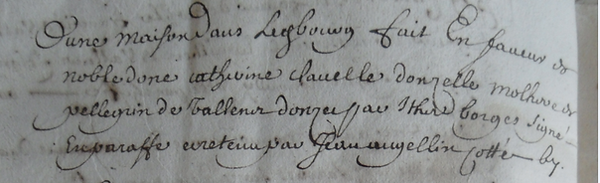 D'une maison dans Lesbourg fait En faveur de
noble done catherine clavelle donzelle molherre de
pellegrin de Vallenez donzel par Ithier borges signé
En paraffe et retenu par Jean angellin cotté by.